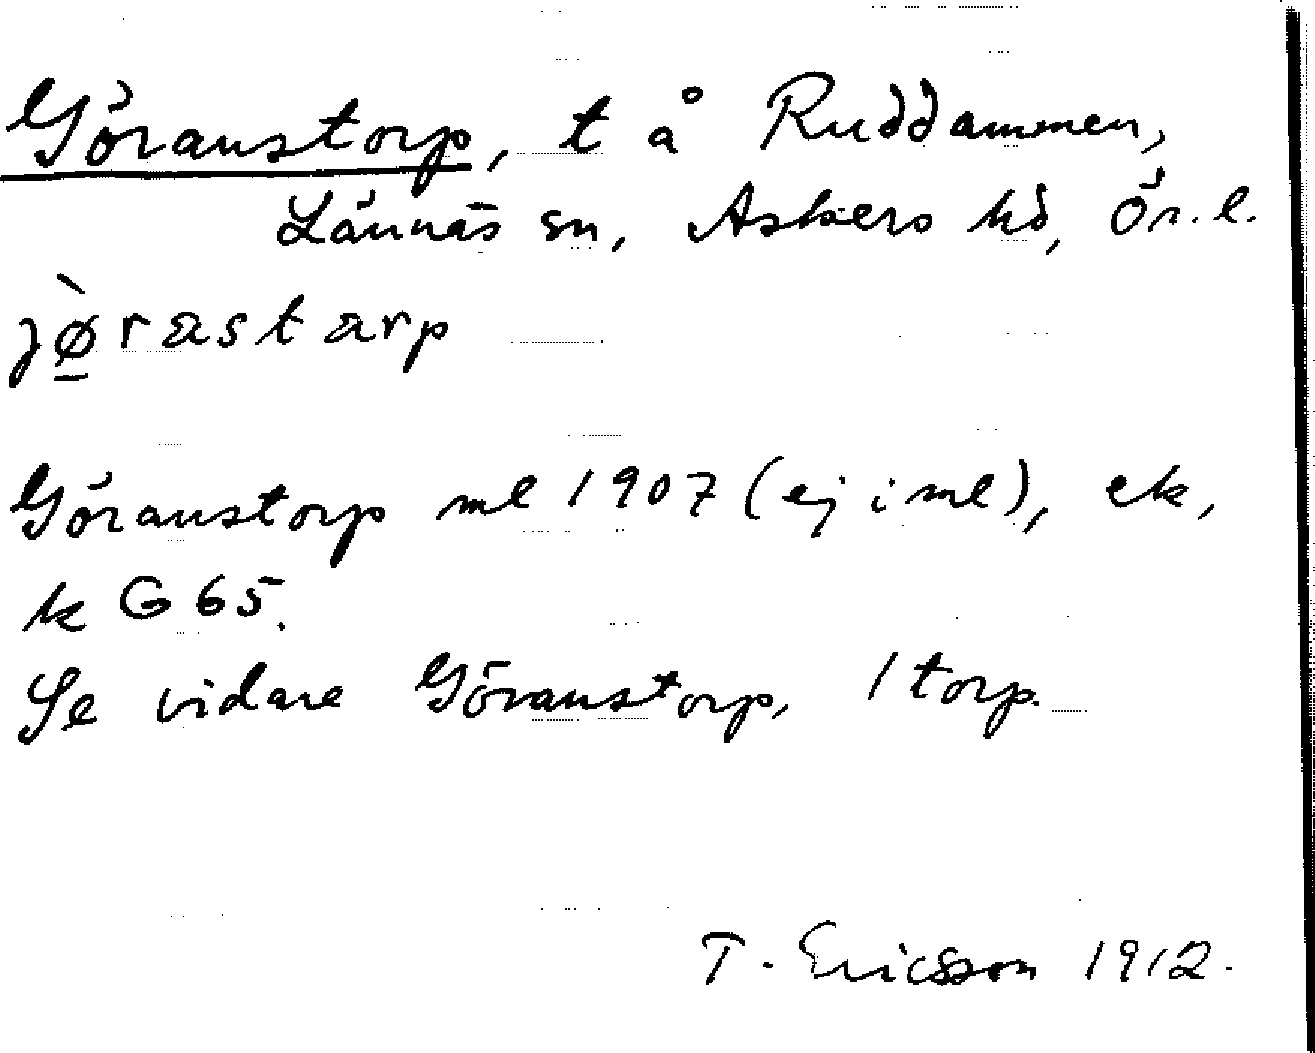 Göranstorp, t å Ruddammen,
Lännäs sn, Askers hd, Ör. l.
jø̲̀rastarp
Göranstorp ml 1907 (ej i ml), ek,
k G 65.
Se vidare Göranstorp, 1 torp.
T. Ericsson 1912.